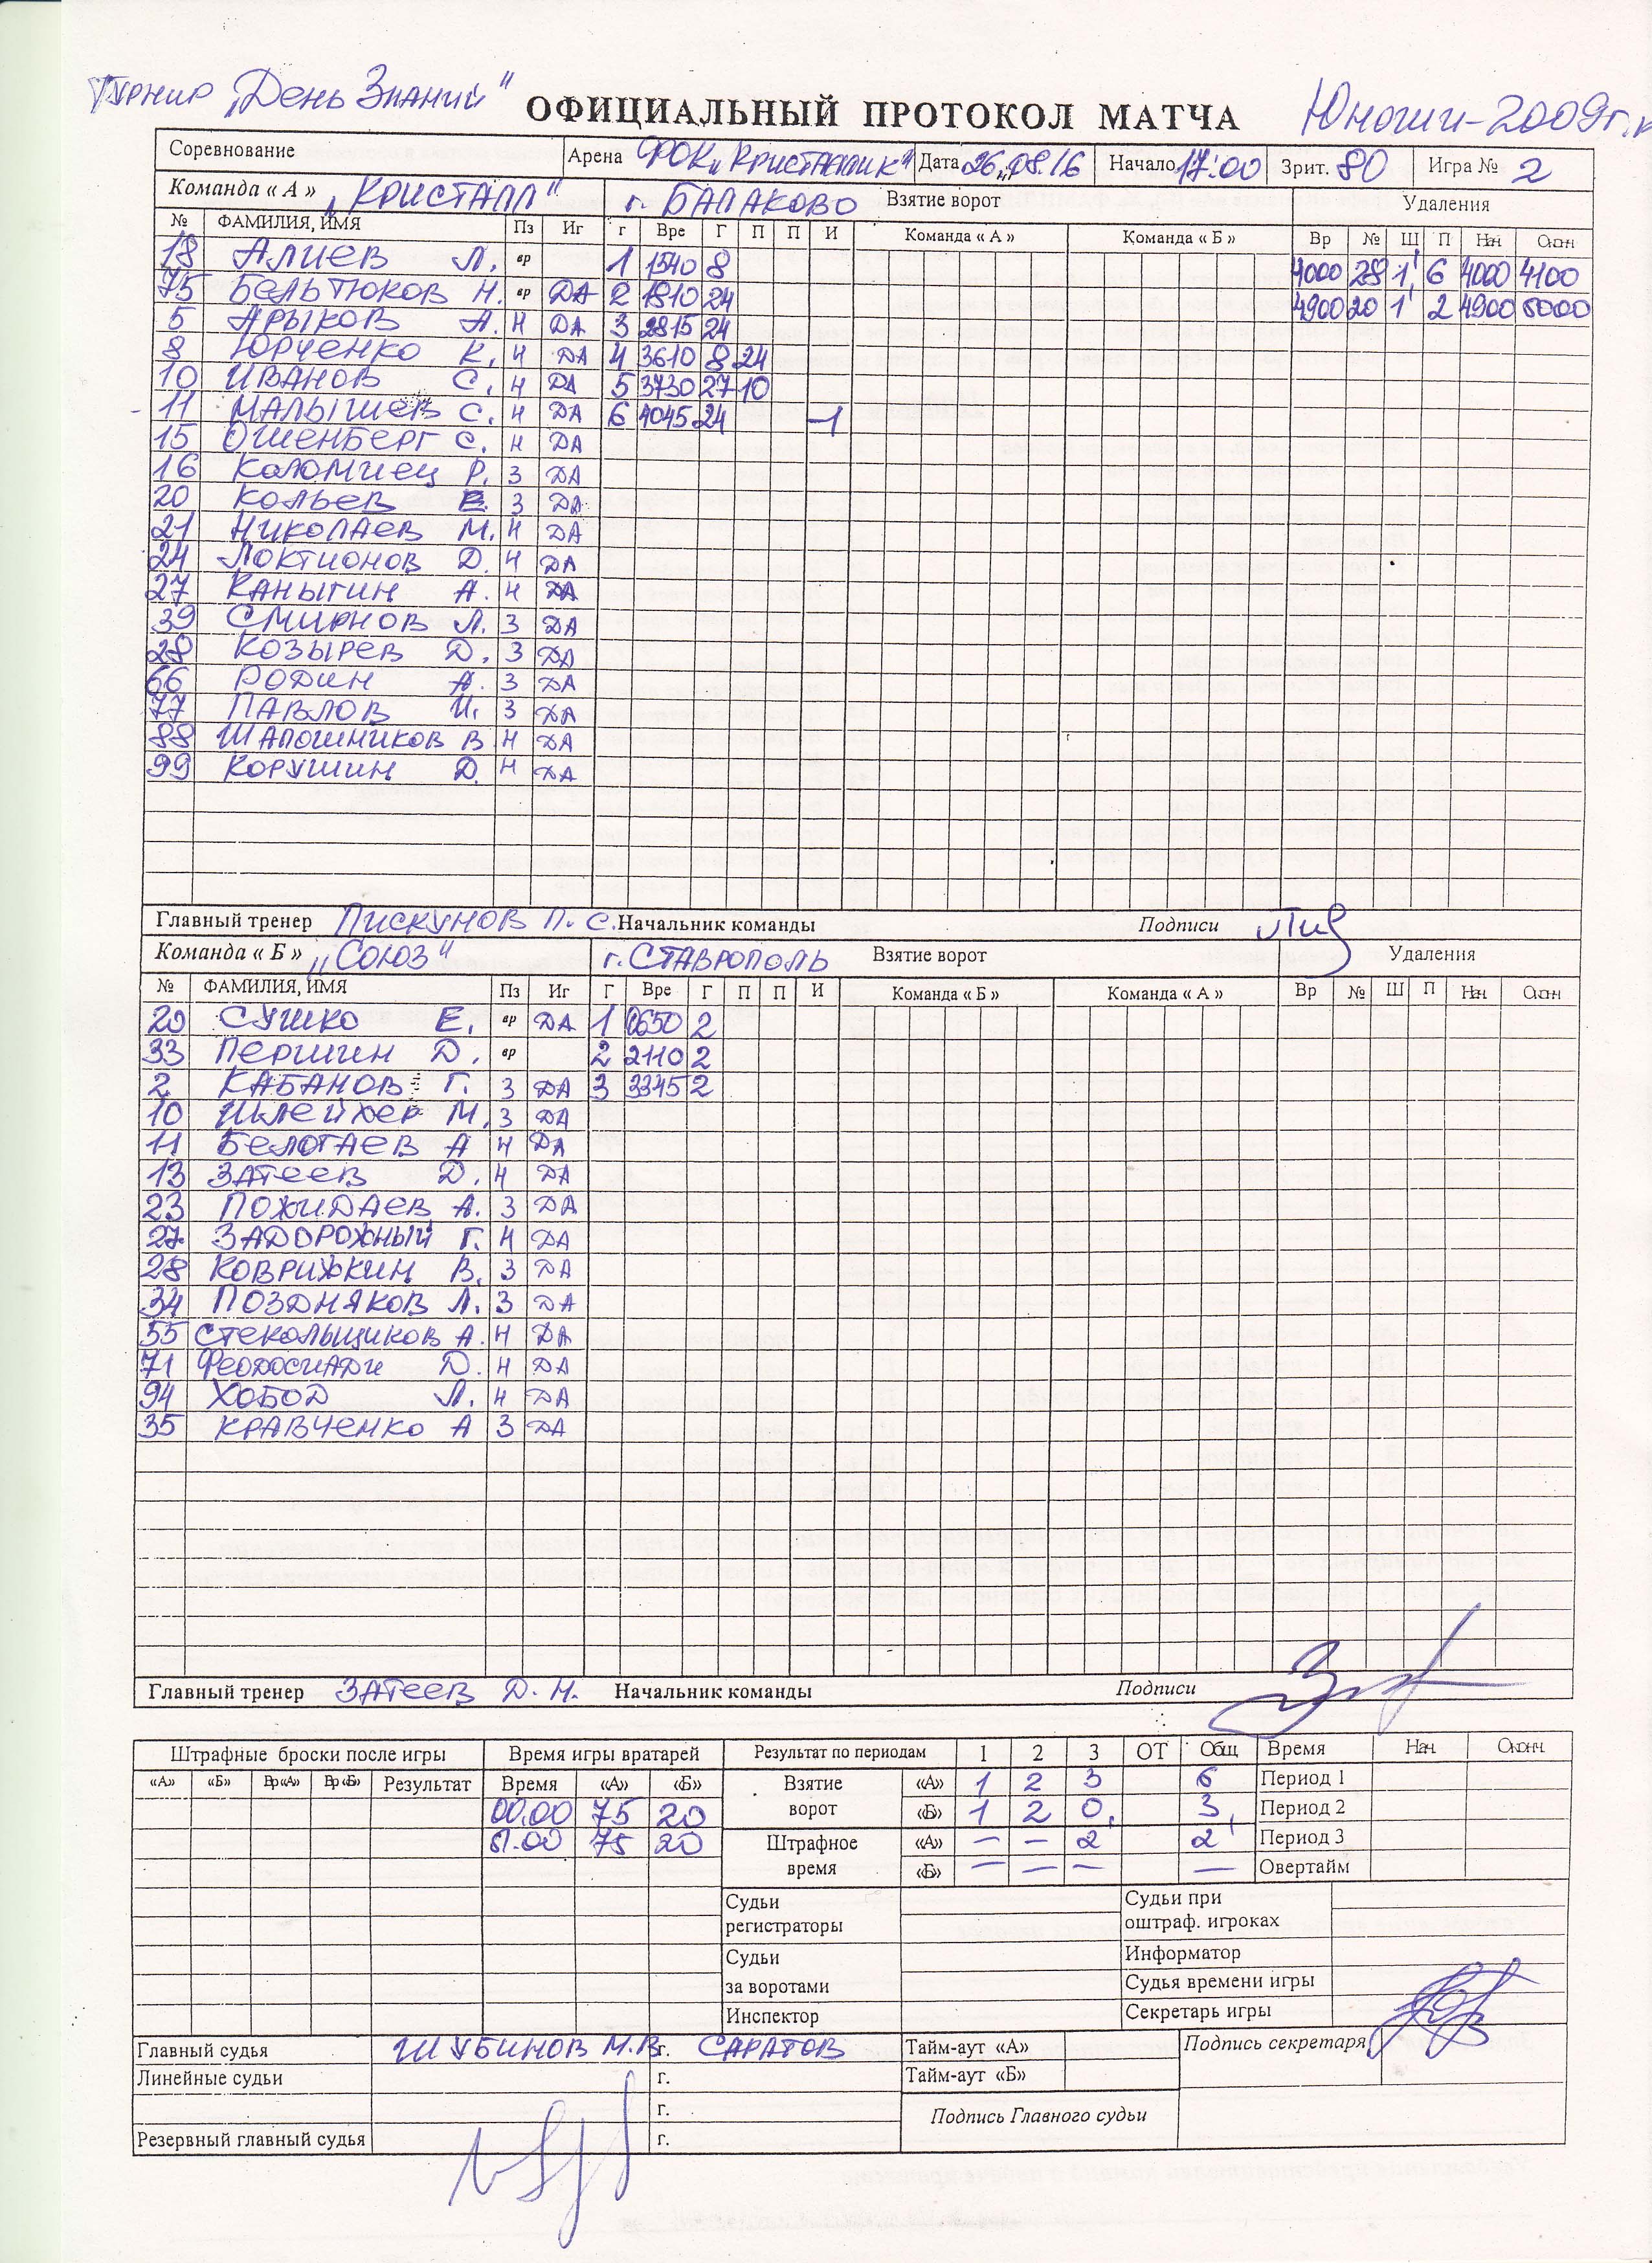 Турнир „День Знаний" ОФИЦИАЛЬНЫЙ ПРОТОКОЛ МАТЧА Юноши-2009г.р
Соревнование Арена ФОК „Кристаллик" Дата 26.08.16 Начало 17:00 Зрит. 80 Игра № 2
Команда « А » „КРИСТАЛЛ" г. БАЛАКОВО Взятие ворот Удаления
№ ФАМИЛИЯ, ИМЯ Пз Иг г Вре Г П П И Команда « А » Команда « Б » Вр № Ш П Нач Окон
18 АЛИЕВ Л. вр 1 1540 8 4000 28 1' 6 4000 4100
75 БЕЛЬТЮКОВ Н. вр ДА 2 1810 24 4900 20 1' 2 4900 5000
5 АРЫКОВ А. Н ДА 3 2815 24
8 ЮРЧЕНКО К. Н ДА 4 3610 8 24
10 ИВАНОВ С. Н ДА 5 3730 27 10
11 МАЛЫШЕВ С. Н ДА 6 4045 24 -1
15 ОШЕНБЕРГ С. Н ДА
16 КОЛОМИЕЦ Р. З ДА
20 КОЛЬЕВ Е. З ДА
21 НИКОЛАЕВ М. Н ДА
24 ЛОКТИОНОВ Д. Н ДА
27 КАНЫГИН А. Н ДА
39 СМИРНОВ Л. З ДА
28 КОЗЫРЕВ Д. З ДА
66 РОДИН А. З ДА
77 ПАВЛОВ И. З ДА
88 ШАПОШНИКОВ В Н ДА
99 КОРУШИН Д. Н ДА
Главный тренер ПИСКУНОВ П. С. Начальник команды Подписи
Команда « Б » „СОЮЗ" г. СТАВРОПОЛЬ Взятие ворот Удаления
№ ФАМИЛИЯ, ИМЯ Пз Иг Г Вре Г П П И Команда « Б » Команда « А » Вр № Ш П Нач Окон
20 СУШКО Е. вр ДА 1 0650 2
33 ПЕРШИН Д. вр 2 2110 2
2 КАБАНОВ Г. З ДА 3 3345 2
10 ШЛЕЙХЕР М. З ДА
11 БЕЛОГАЕВ А Н ДА
13 ЗАТЕЕВ Д. Н ДА
23 ПОЖИДАЕВ А. З ДА
27 ЗАДОРОЖНЫЙ Г. Н ДА
28 КОВРИЖКИН В. З ДА
34 ПОЗДНЯКОВ Л. З ДА
55 СТЕКОЛЬЩИКОВ А. Н ДА
71 ФЕОДОСИАДИ Д. Н ДА
94 ХОБОД Л. Н ДА
35 КРАВЧЕНКО А З ДА
Главный тренер ЗАТЕЕВ Д. Н. Начальник команды Подписи
Штрафные броски после игры Время игры вратарей Результат по периодам 1 2 3 ОТ Общ Время Нач. Оконч.
«А» «Б» Вр«А» Вр«Б» Результат Время «А» «Б» Взятие ворот «А» 1 2 3 6 Период 1
00.00 75 20 «Б» 1 2 0 3 Период 2
51.00 75 20 Штрафное время «А» — — 2 2 Период 3
«Б» — — — — Овертайм
Судьи регистраторы Судьи при оштраф. игроках
Судьи за воротами Информатор
Судья времени игры
Инспектор Секретарь игры
Главный судья ШУБИНОВ М.В. г. САРАТОВ Тайм-аут «А» Подпись секретаря
Линейные судьи г. Тайм-аут «Б»
г. Подпись Главного судьи
Резервный главный судья г.